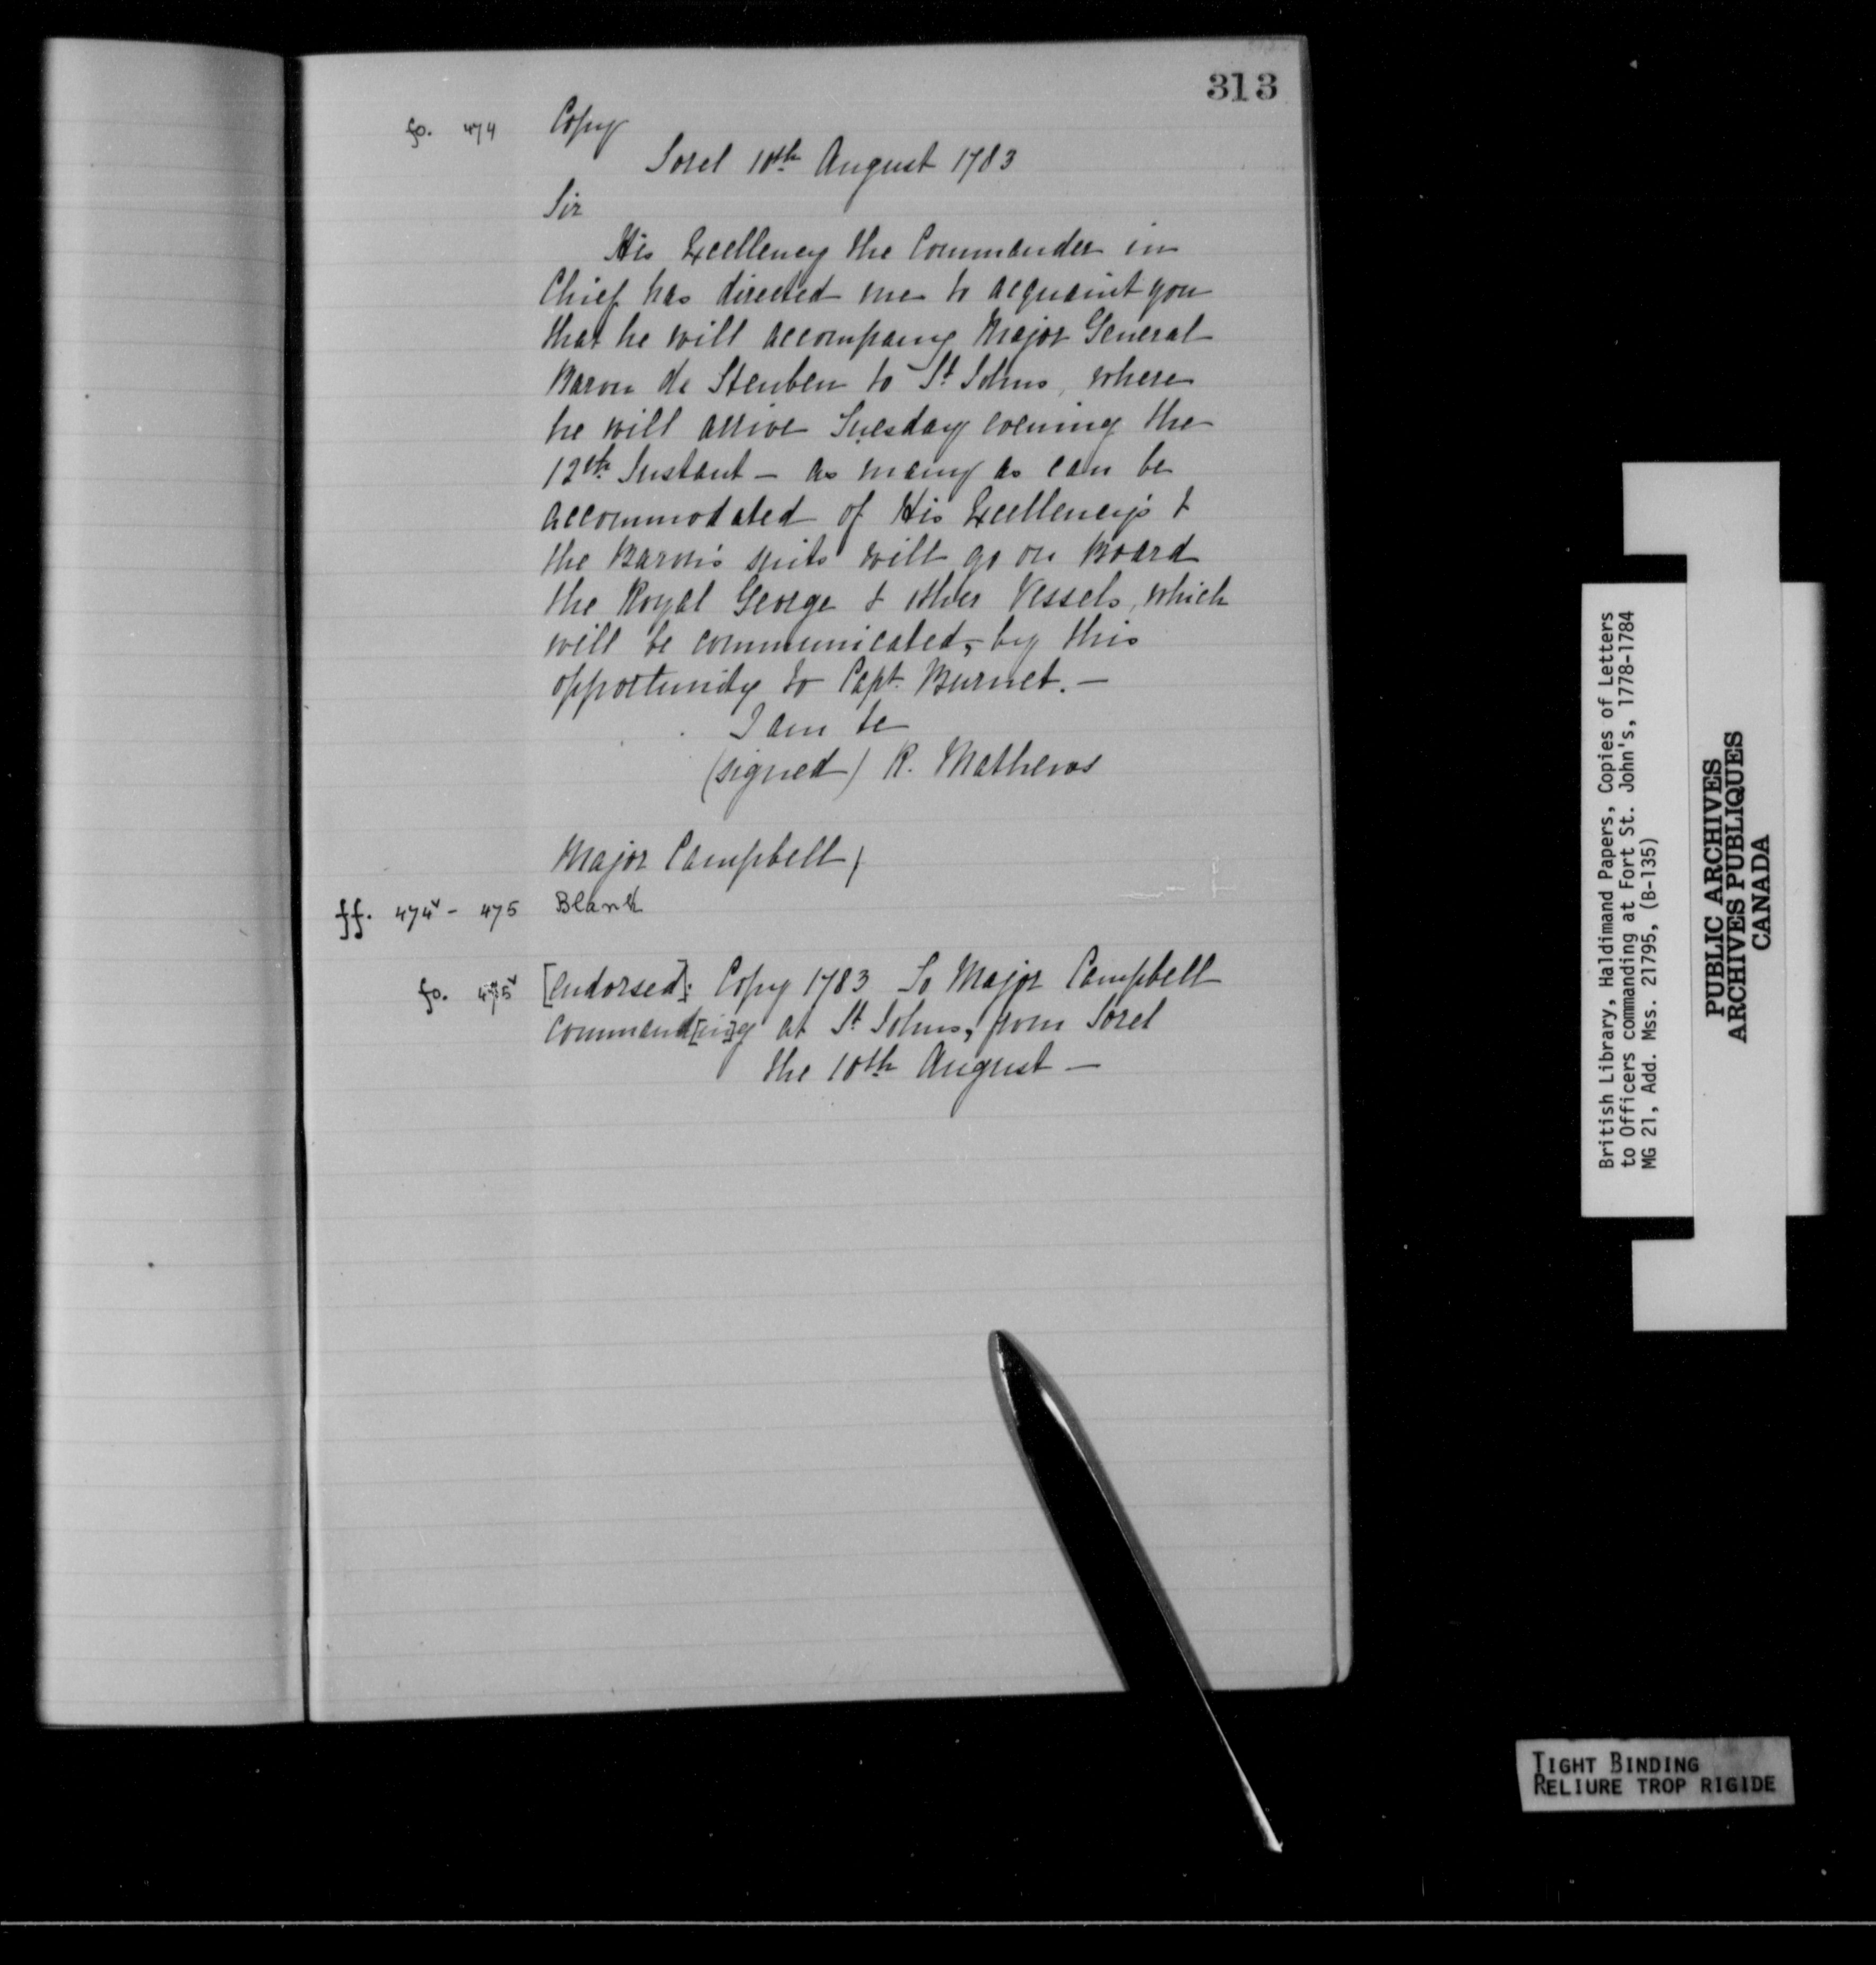 313
fo. 474 Copy
Sorel 10th August 1783
Sir
His Excellency the Commander in
Chief has directed me to acquaint you
that he will accompany Major General
Baron de Steuben to St Johns, where
he will arrive Tuesday evening the
12th Instant - as many as can be
accommodated of His Excellency's &
the Baron's suits will go on Board
the Royal George & other Vessels, which
will be communicated, by this
opportunity to Capt. Burnet. —
I am &c
(signed) R. Mathews
Major Campbell,
ff. 474v - 475 Blank
fo. 475v [endorsed]: Copy 1783 To Major Campbell
command[in]g at St Johns, from Sorel
the 10th August —
British Library, Haldimand Papers, Copies of Letters
to Officers commanding at Fort St. John's, 1778-1784
MG 21, Add. Mss. 21795, (B-135)
PUBLIC ARCHIVES
ARCHIVES PUBLIQUES
CANADA
TIGHT BINDING
RELIURE TROP RIGIDE